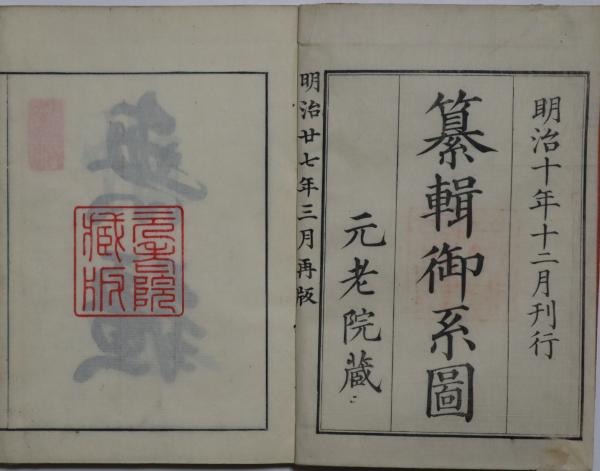 明治十年十二月刊行
纂輯御系圖
元老院蔵
明治廿七年三月再版
元老院
蔵版